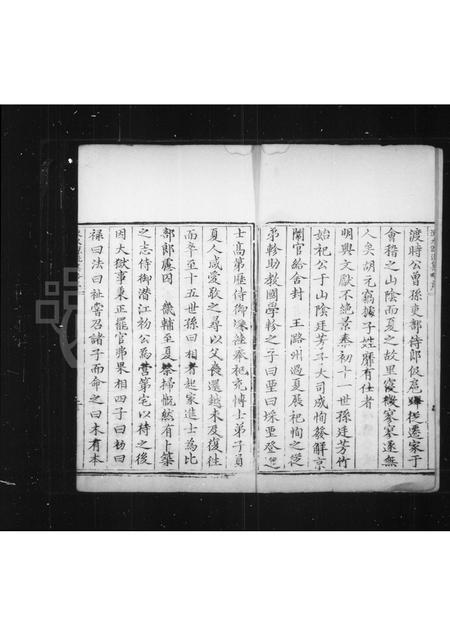 渡時公曾孫吏部侍郎仮扈蹕從遷家于
會稽之山陰而夏之故里寢微寥寥遂無
人矣胡元竊據子姓靡有仕者
明興文獻不絶景泰初十一世孫廷芳竹
始祀公于山陰廷芳子大司成恂發解京
闈官給舍封 王潞州過夏展祀恂之從
弟軫助教國學軫之子曰垔曰埰垔登進
士高第歷侍御埰徃奉祀充博士弟子員
夏人咸愛敬之尋以父喪還越未及復往
而卒至十五世孫曰相者起家進士為比
部郎慮囚 畿輔至夏祭掃慨然有卜築
之志侍御潛江初公為營第宅以待之後
因大獄事秉正罷官弗果相四子曰劾曰
祿曰法曰祉嘗召諸子而命之曰木有本